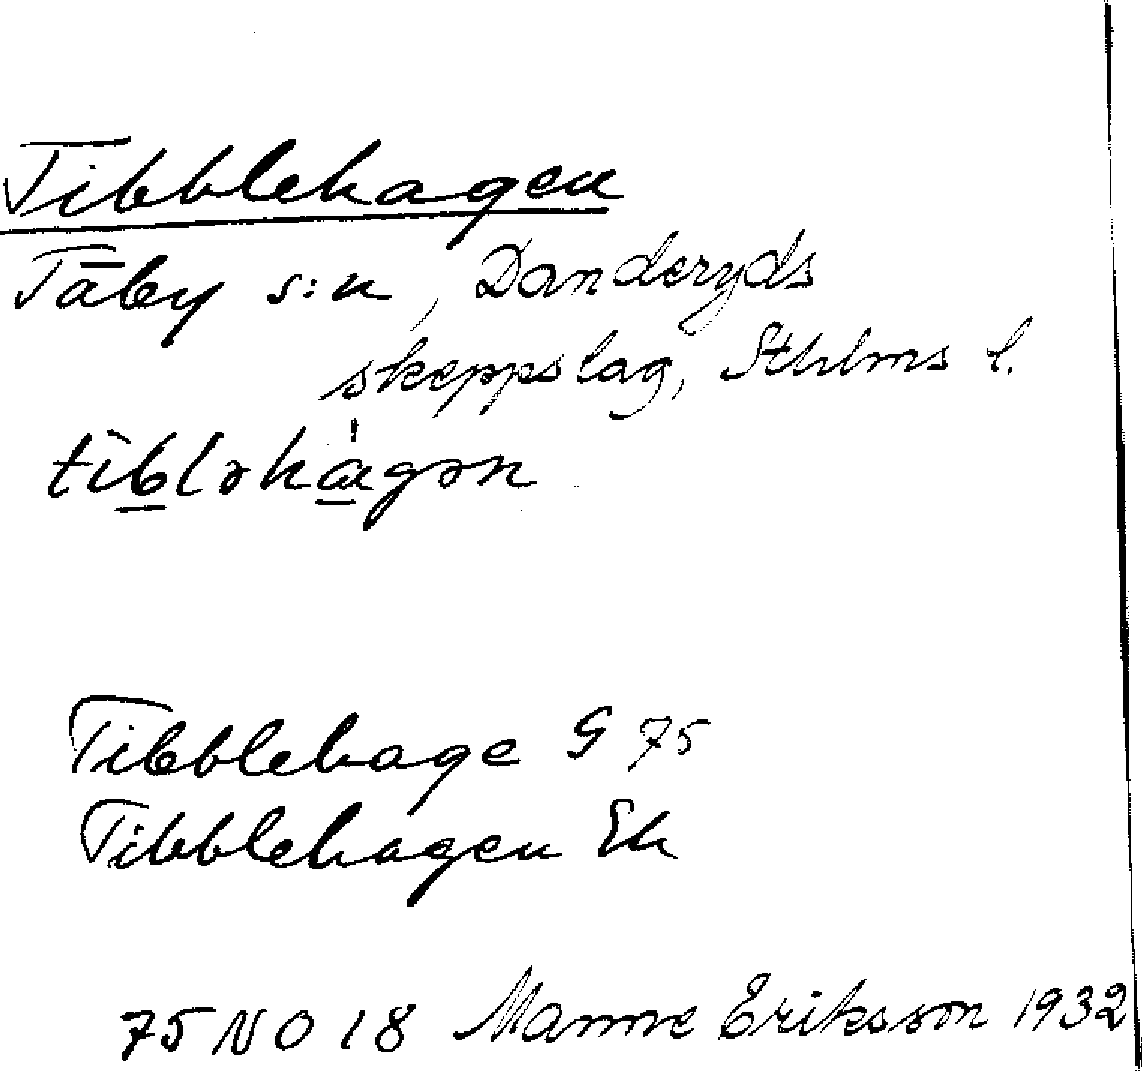 Tibblehagen
Täby s:n, Danderyds
skeppslag, Sthlms l.
tìbləhàgən
Tibblehage G 75
Tibblehagen Ek
75 NO 18 Manne Eriksson 1932